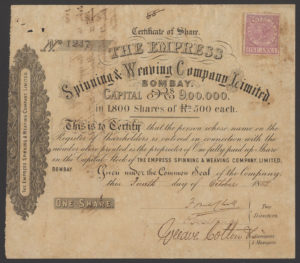 Certificate of Share.
No 1237
THE EMPRESS
Spinning & Weaving Company, Limited
BOMBAY.
CAPITAL Rs 9,00,000.
in 1,800 Shares of Rs 500 each.
This is to Certify that the person whose name on the
Register of Shareholders is entered in connection with the
number above printed is the proprietor of One fully paid up Share
in the Capital Stock of THE EMPRESS SPINNING & WEAVING COMPANY, LIMITED,
BOMBAY.
Given under the Common Seal of the Company
this Fourth day of October
ONE SHARE
Two
Directors
Greaves Cotton & Co
THE EMPRESS SPINNING & WEAVING COMPANY, LIMITED.
ONE ANNA